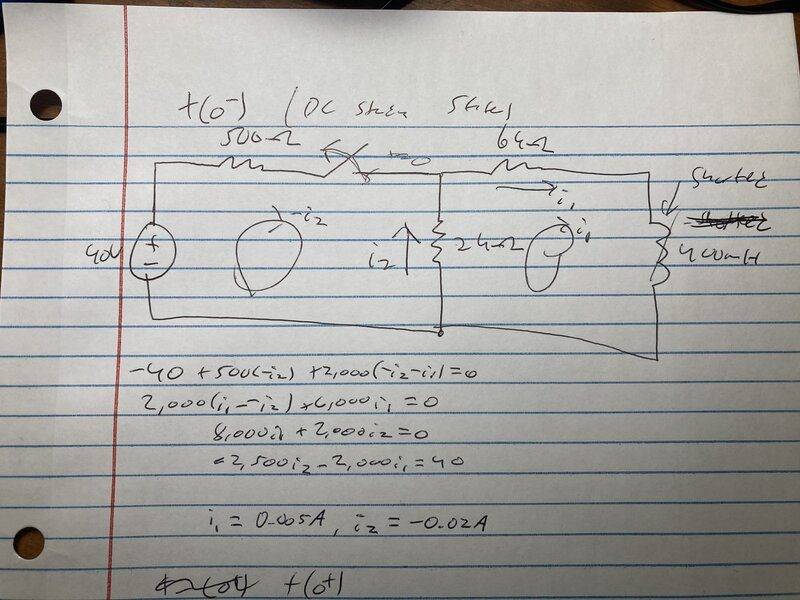 t(0⁻) (DC steady state)
500Ω t=0 6kΩ
i₁ shorted
-i₂ i₁
40V + - i₂ 2kΩ 400mH
-40 + 500(-i₂) + 2,000(-i₂-i₁) = 0
2,000(i₁--i₂) + 6,000i₁ = 0
8,000i₁ + 2,000i₂ = 0
-2,500i₂ - 2,000i₁ = 40
i₁ = 0.005A, i₂ = -0.02A
t(0⁺)